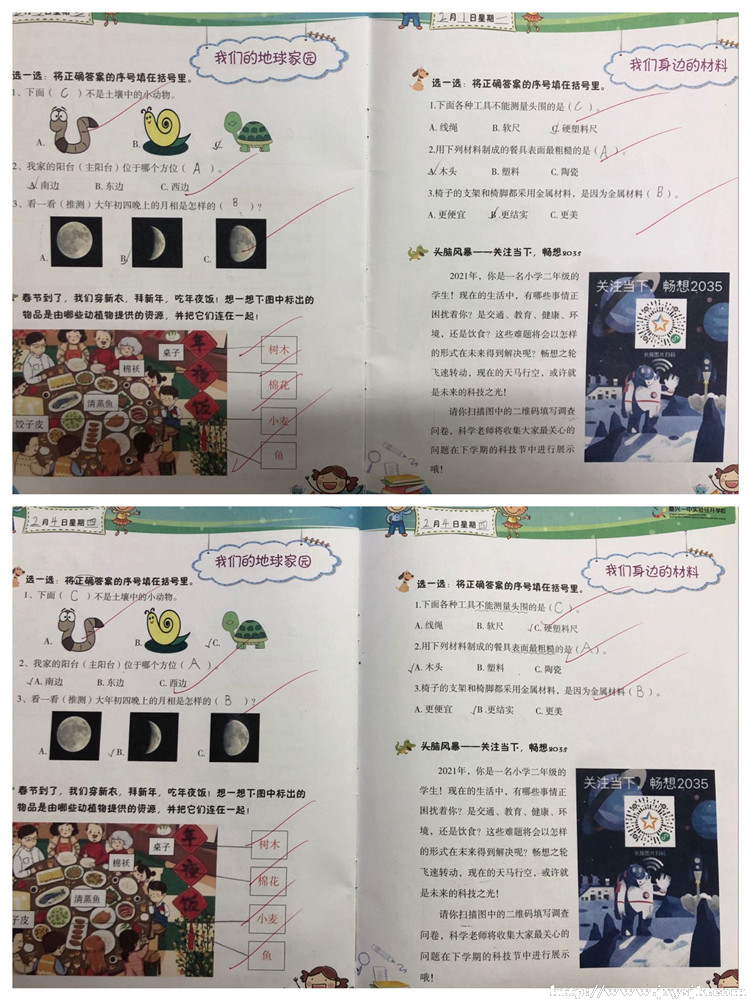 2月1日星期一
我们的地球家园
选一选：将正确答案的序号填在括号里。
1、下面（ C ）不是土壤中的小动物。
A. B. C.
2、我家的阳台（主阳台）位于哪个方位（ A ）。
A. 南边 B. 东边 C. 西边
3、看一看（推测）大年初四晚上的月相是怎样的（ B ）？
A. B. C.
春节到了，我们穿新衣，拜新年，吃年夜饭！想一想下图中标出的
物品是由哪些动植物提供的资源，并把它们连在一起！
年夜饭
桌子
棉袄
清蒸鱼
饺子皮
树木
棉花
小麦
鱼
我们身边的材料
选一选：将正确答案的序号填在括号里。
1.下面各种工具不能测量头围的是（ C ）。
A. 线绳 B. 软尺 C. 硬塑料尺
2.用下列材料制成的餐具表面最粗糙的是（ A ）。
A. 木头 B. 塑料 C. 陶瓷
3.椅子的支架和椅脚都采用金属材料，是因为金属材料（ B ）。
A. 更便宜 B. 更结实 C. 更美
头脑风暴——关注当下，畅想2035
2021年，你是一名小学二年级的
学生！现在的生活中，有哪些事情正
困扰着你？是交通、教育、健康、环
境，还是饮食？这些难题将会以怎样
的形式在未来得到解决呢？畅想之轮
飞速转动，现在的天马行空，或许就
是未来的科技之光！
请你扫描图中的二维码填写调查
问卷，科学老师将收集大家最关心的
问题在下学期的科技节中进行展示
哦！
关注当下，畅想2035
长按图片扫码
2月4日星期四
我们的地球家园
选一选：将正确答案的序号填在括号里。
1、下面（ C ）不是土壤中的小动物。
A. B. C.
2、我家的阳台（主阳台）位于哪个方位（ A ）。
A. 南边 B. 东边 C. 西边
3、看一看（推测）大年初四晚上的月相是怎样的（ B ）？
A. B. C.
春节到了，我们穿新衣，拜新年，吃年夜饭！想一想下图中标出的
物品是由哪些动植物提供的资源，并把它们连在一起！
年夜饭
桌子
棉袄
清蒸鱼
子皮
树木
棉花
小麦
鱼
2月4日星期四
我们身边的材料
选一选：将正确答案的序号填在括号里。
1.下面各种工具不能测量头围的是（ C ）。
A. 线绳 B. 软尺 C. 硬塑料尺
2.用下列材料制成的餐具表面最粗糙的是（ A ）。
A. 木头 B. 塑料 C. 陶瓷
3.椅子的支架和椅脚都采用金属材料，是因为金属材料（ B ）。
A. 更便宜 B. 更结实 C. 更美
头脑风暴——关注当下，畅想2035
2021年，你是一名小学二年级的
学生！现在的生活中，有哪些事情正
困扰着你？是交通、教育、健康、环
境，还是饮食？这些难题将会以怎样
的形式在未来得到解决呢？畅想之轮
飞速转动，现在的天马行空，或许就
是未来的科技之光！
请你扫描图中的二维码填写调查
问卷，科学老师将收集大家最关心的
问题在下学期的科技节中进行展示
哦！
关注当下，畅想2035
长按图片扫码
http://www.jxysjk.com